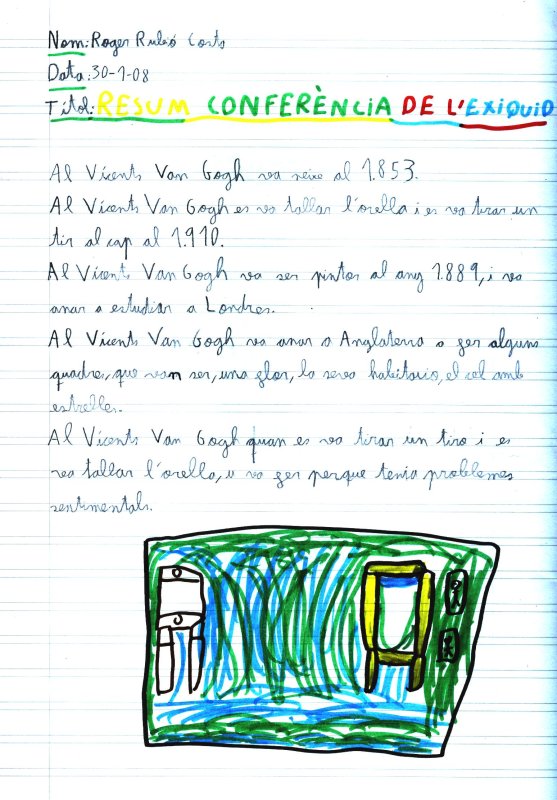 Nom: Roger Rubió Costs
Data: 30-1-08
Títol: RESUM CONFERÈNCIA DE L'EXIQUIO
Al Vicents Van Gogh va neixe al 1.853.
Al Vicents Van Gogh es va tallar l'orella i es va tirar un
tir al cap al 1.910.
Al Vicents Van Gogh va ser pintor al any 1.889, i va
anar a estudiar a Londres.
Al Vicents Van Gogh va anar a Anglaterra a fer alguns
quadres, que van ser, una flor, la seva habitacio, el cel amb
estrelles.
Al Vicents Van Gogh quan es va tirar un tiro i es
va tallar l'orella, u va fer perque tenia problemes
sentimentals.